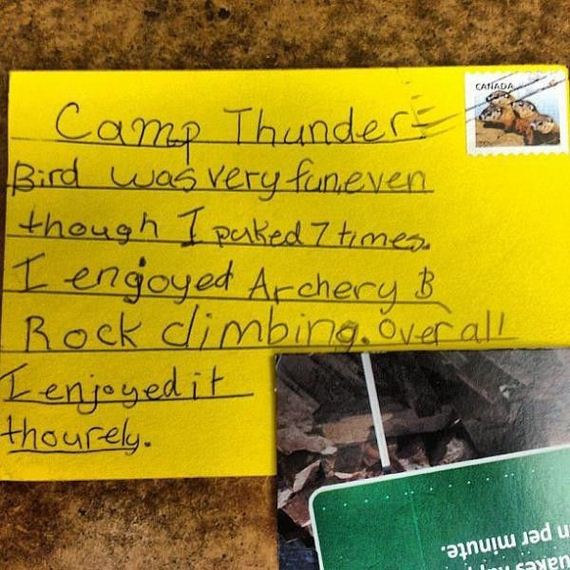 CANADA
Camp Thunder=
Bird was very fun, even
though I puked 7 times.
I engoyed Archery &
Rock climbing. Over all
I enjoyed it
thourely.
n per minute.